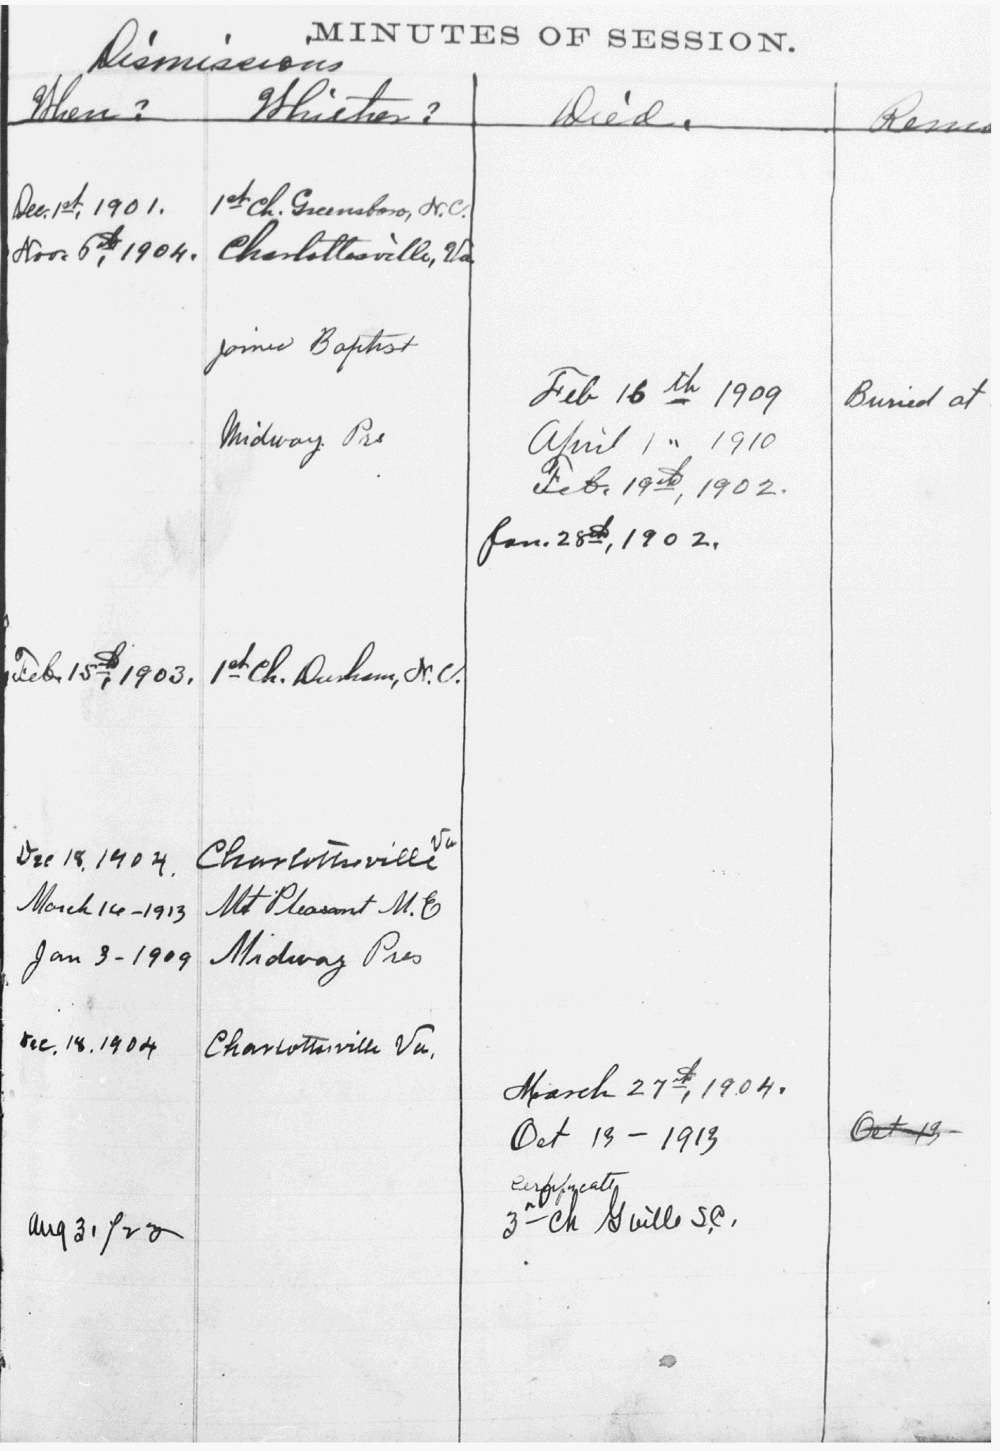 MINUTES OF SESSION.
Dismissions
When? Whither? Died.
Dec. 1st, 1901. 1st Ch. Greensboro, N.C.
Nov. 6th, 1904. Charlottesville, Va.
joined Baptist
Feb 16th 1909 Buried at
Midway Pres April 1 " 1910
Feb. 19th, 1902.
Jan. 28th, 1902.
Feb. 15th, 1903. 1st Ch. Durham, N.C.
Dec 18, 1904. Charlottesville Va
March 14-1913 Mt Pleasant M.E
Jan 3-1909 Midway Pres
Dec. 18. 1904 Charlottesville Va.
March 27th, 1904.
Oct 13-1913 Oct 13-
certificate
Aug 31, /22 3rd Ch Gville S.C.